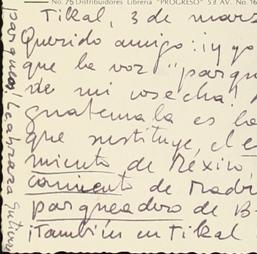 No. 76 Distribuidores Librería "PROGRESO" 5a. AV. No. 16
Tikal, 3 de marz
Querido amigo: ¡y yo
que la voz "parqu
de mi cosecha!
guatemala es la
que sustituye, el e
miento de México,
camiento de Madri
parqueadero de B
¡También en Tikal
parquear